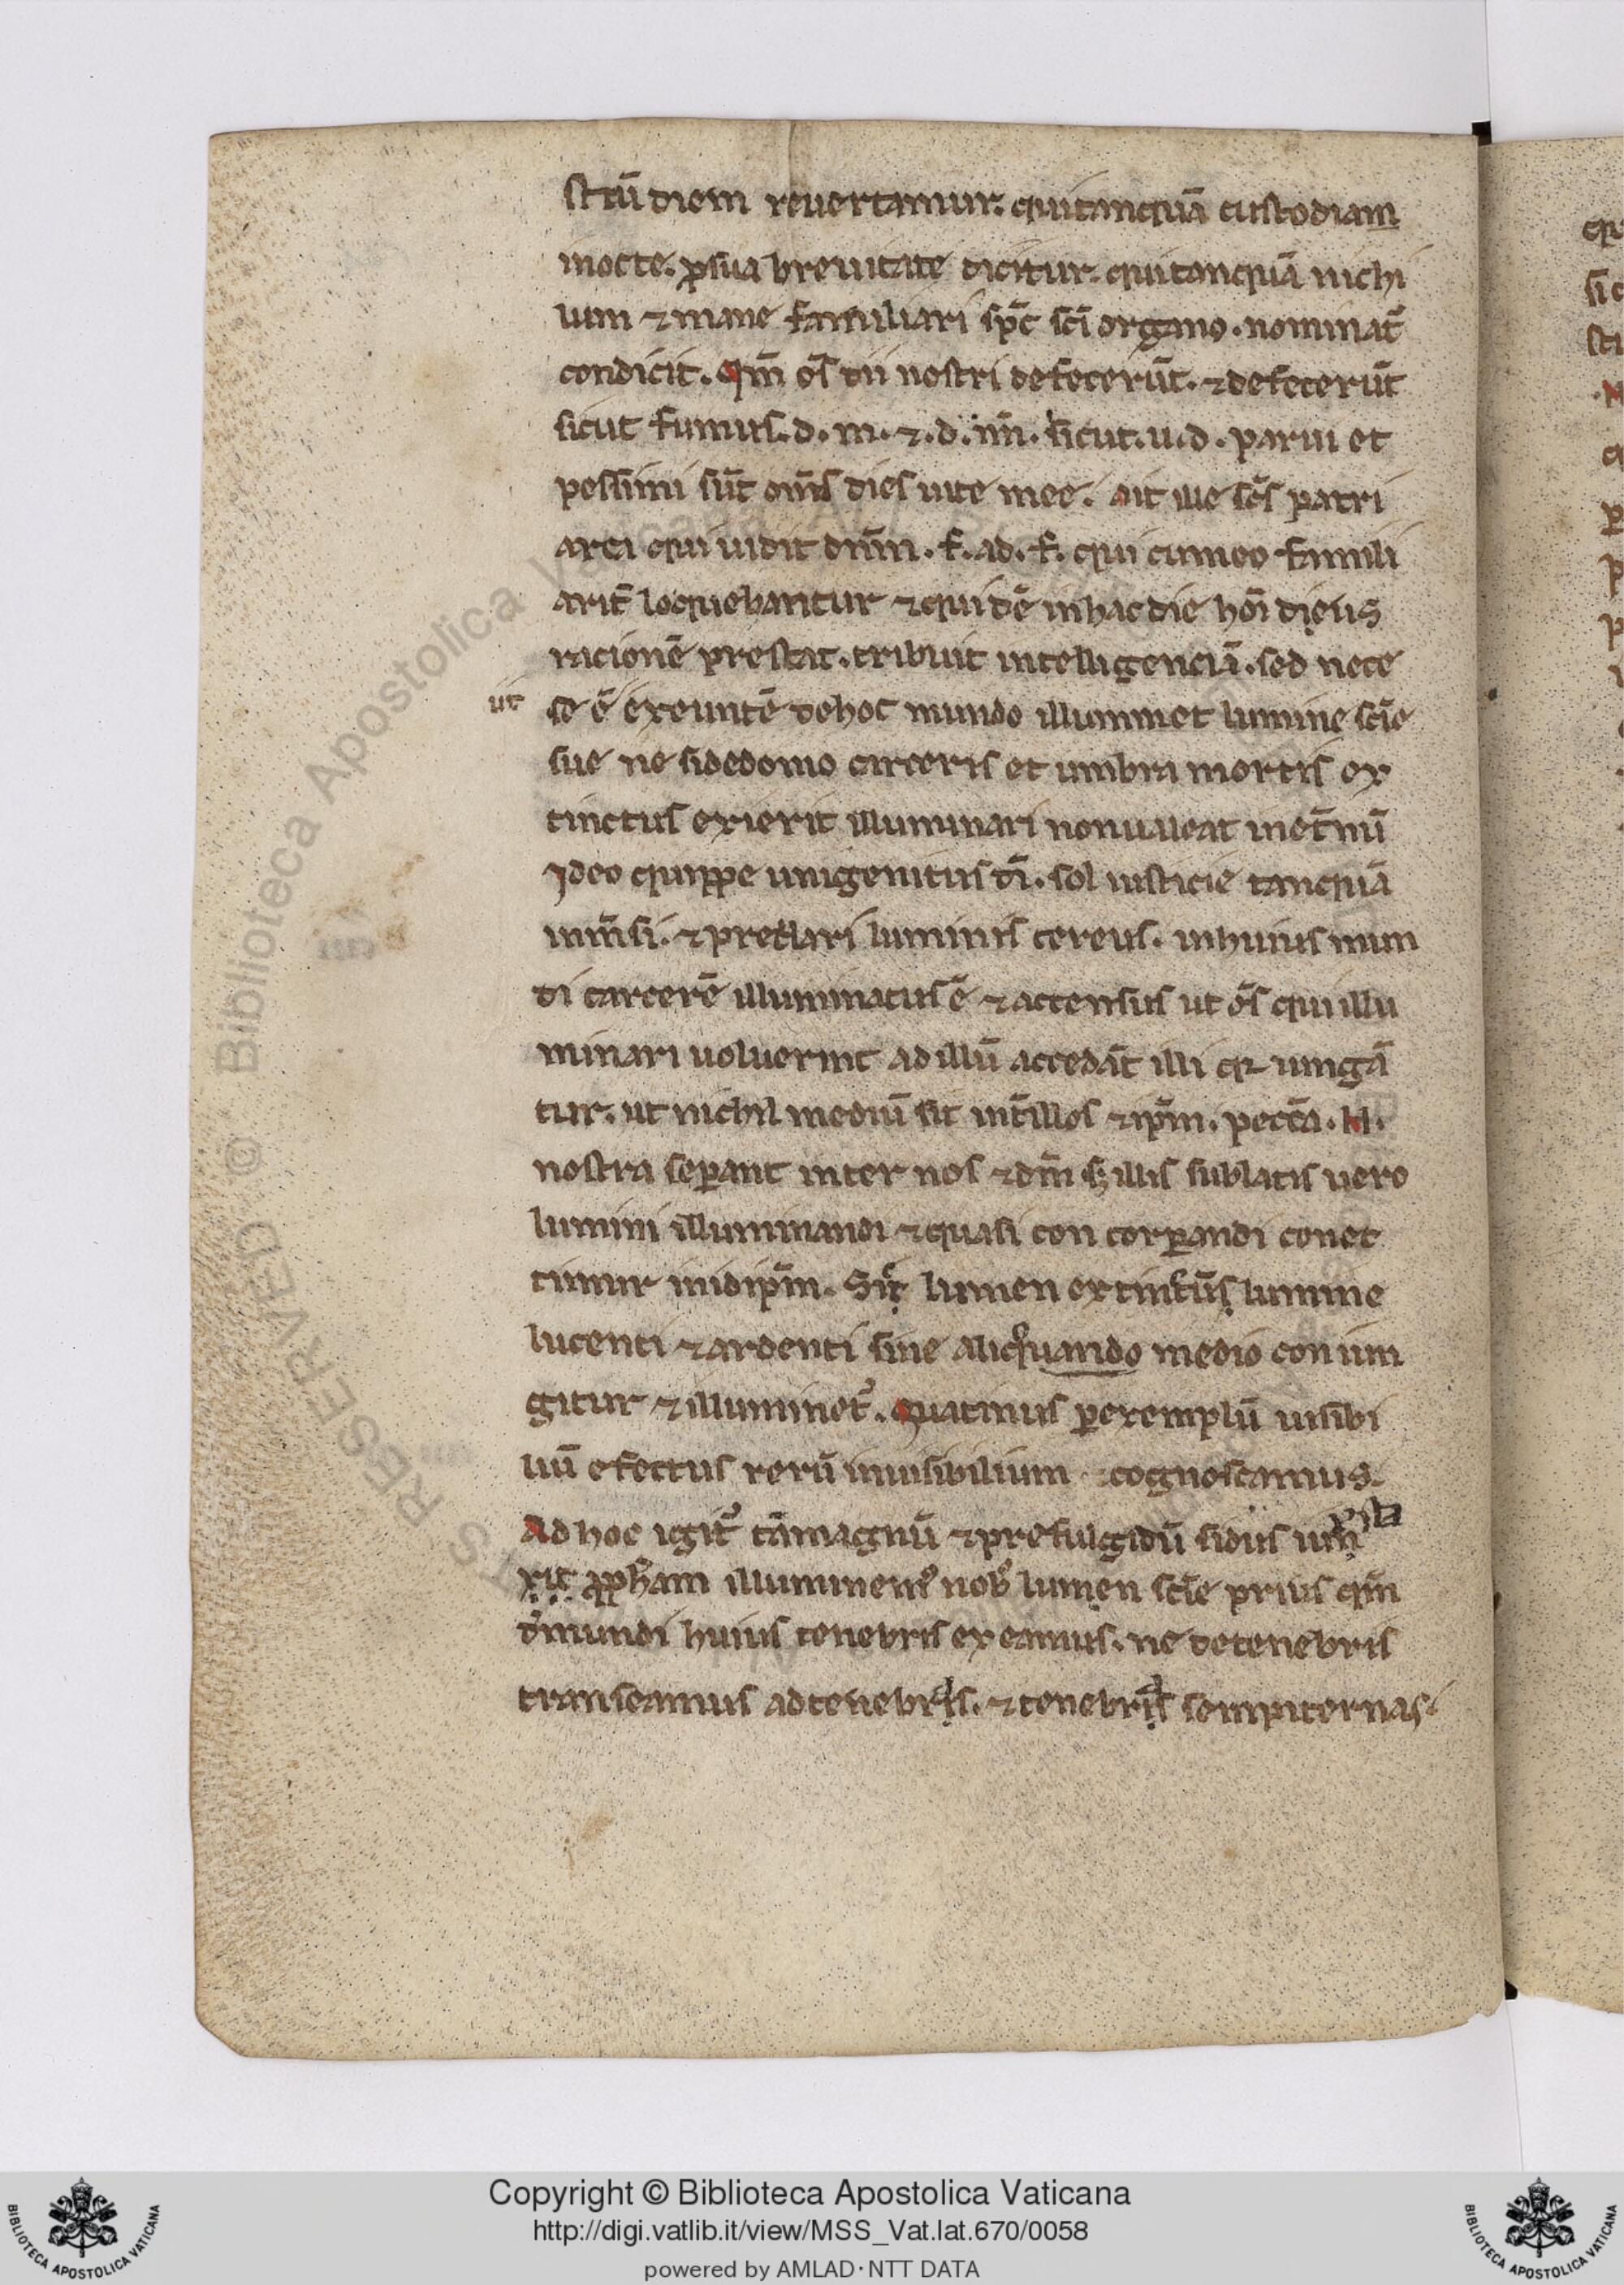 strū diem reuertamur. qui tanquā custodiam
inocte. ꝑ sua breuitate dicitur. qui tanquā nichi
lum ⁊ mane familiari sp̄c sc̄i organo. nominat᷑
condicit. Qm̄ om̄s dii nostri defecerūt. ⁊ defecerūt
sicut fumus. d. m. ⁊. d. nr̄i. sicut. u. d. parui et
pessimi sūt om̄s dies uite mee. ait ille sc̄s patri
arca qui uidit dnm̄. f. ad. f. qui cum eo famili
arit᷑ loquebantur ⁊ quidē in hac die hōi dieus
racionē prestat. tribuit intelligenciā. sed nece
ut se ē exeuntē de hoc mundo illuminet lumine scīe
sue ne si de domo carceris et umbra mortis ex
tinctus exierit illuminari non ualeat in et᷑nū
Ideo quippe unigenitus dī. sol iusticie tanquā
inm̄si. ⁊ preclari luminis cereus. in huius mun
di carcerē illuminatus ē ⁊ accensus ut om̄s qui illu
minari uoluerint ad illū accedāt illi q; iungā
tur. ut nichil mediū sit int᷑ illos ⁊ ip̄m. peccā. N.
nostra seꝑant inter nos ⁊ dm̄ s; illis sublatis uero
lumini illuminandi ⁊ quasi con corꝑandi conec
timur in idip̄m. Sic lumen extinctūs lumine
lucenti ⁊ ardenti sine aliquando medio coniun
gitur ⁊ illuminet᷑. Quatinus ꝑ exemplū uisibi
liū efectus rerū inuisibilium cognoscamus.
Ad hoc igit᷑ tā magnū ⁊ prefulgidū sidus
illuminem᷒ nob᷒ lumen scīe prius qm̄
d᷑ mundi huius tenebris exeamus. ne de tenebris
transeamus ad tenebras. ⁊ tenebras sempiternas.
Copyright © Biblioteca Apostolica Vaticana
http://digi.vatlib.it/view/MSS_Vat.lat.670/0058
powered by AMLAD·NTT DATA
BIBLIOTECA APOSTOLICA VATICANA
BIBLIOTECA APOSTOLICA VATICANA